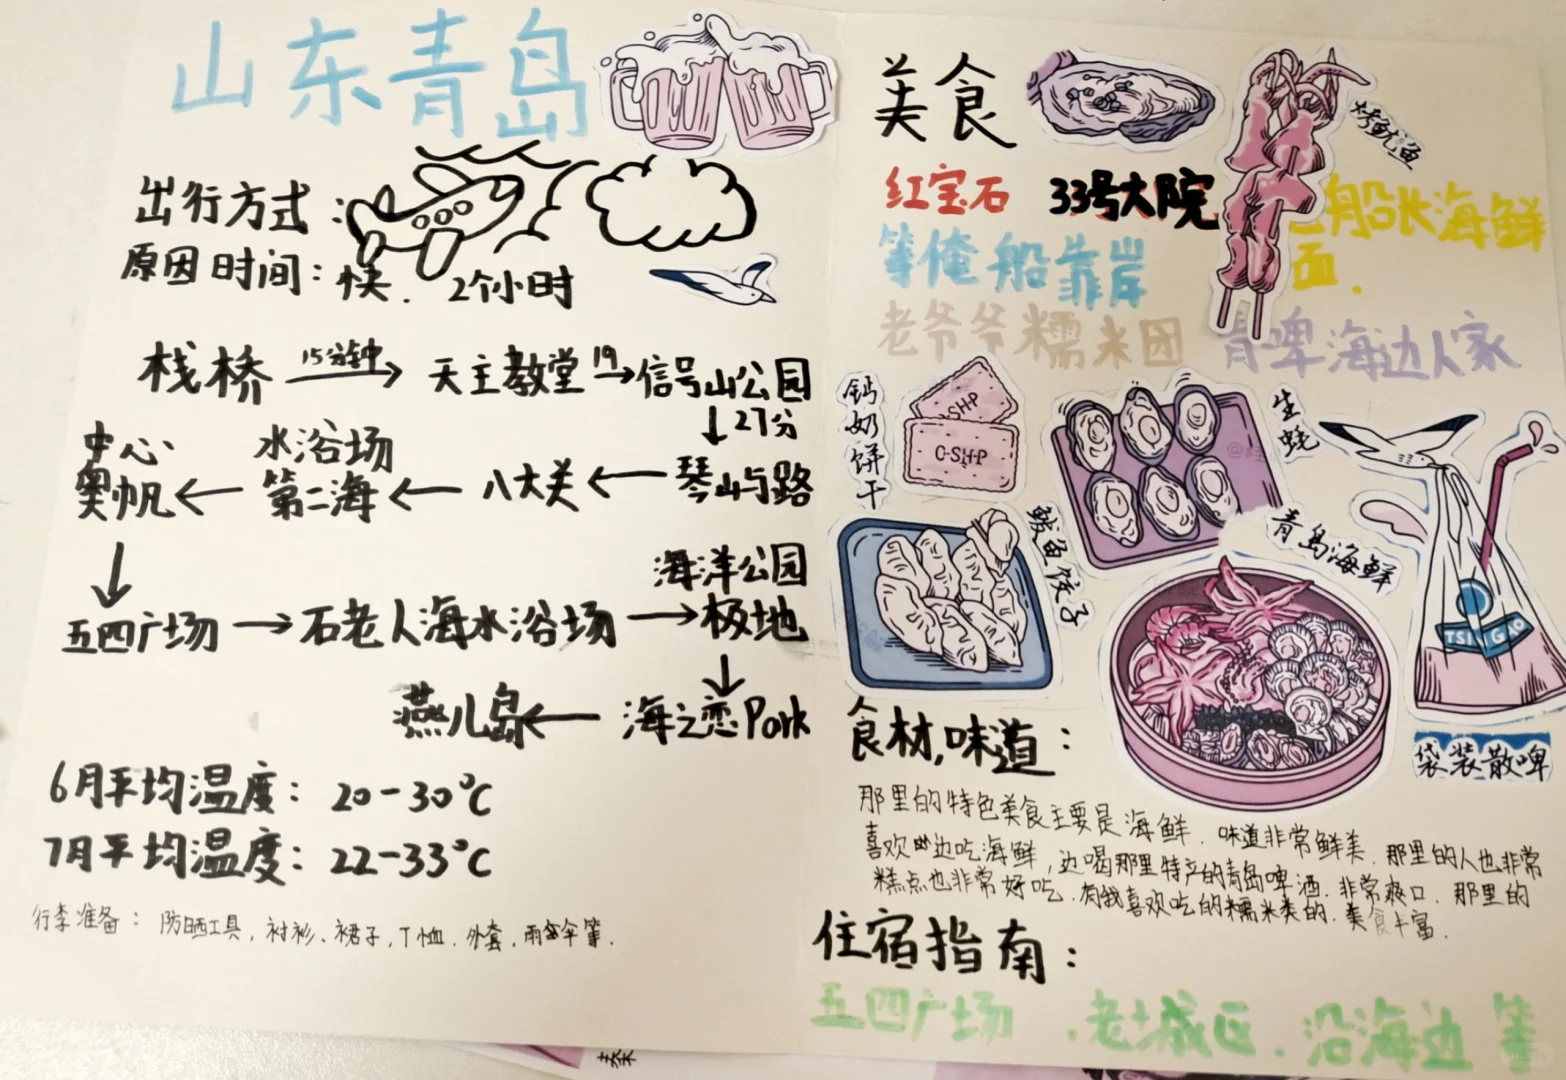 山东青岛
出行方式：
原因时间：快. 2个小时
栈桥 15分钟→ 天主教堂 19→ 信号山公园
↓27分
中心 水浴场
奥帆 ← 第二海 ← 八大关 ← 琴屿路
↓
海洋公园
五四广场 → 石老人海水浴场 → 极地
↓
燕儿岛 ← 海之恋Park
6月平均温度：20-30°C
7月平均温度：22-33°C
行李准备：防晒工具，衬衫、裙子，T恤.外套，雨伞等.
美食
烤鱿鱼
红宝石 33号大院 船长海鲜
面.
等俺船靠岸
老爷爷糯米团 青啤海边人家
钙奶饼干
C·SHP
生蚝
鲅鱼饺子
青岛海鲜
TSINGAO
袋装散啤
食材,味道：
那里的特色美食主要是海鲜.味道非常鲜美.那里的人也非常
喜欢边吃海鲜,边喝那里特产的青岛啤酒.非常爽口.那里的
糕点也非常好吃.有我喜欢吃的糯米类的.美食丰富.
住宿指南：
五四广场.老城区.沿海边等